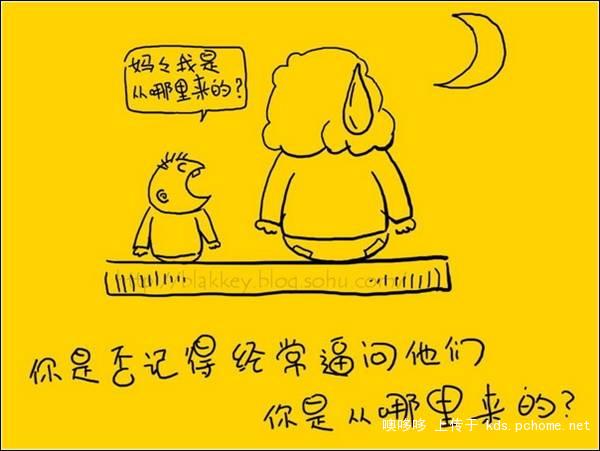 妈々我是
从哪里来的?
http://blakkey.blog.sohu.com/
你是否记得经常逼问他们
你是从哪里来的?
噢哆哆 上传于 kds.pchome.net